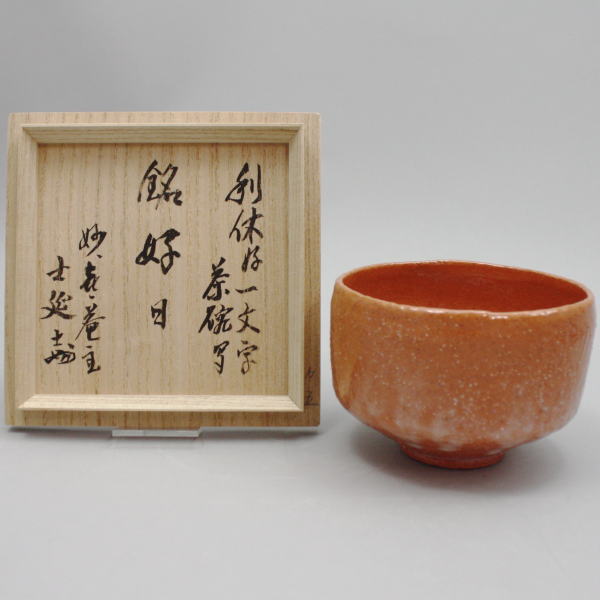 利休好一文字
茶碗写
銘 好日
妙喜庵主
士延